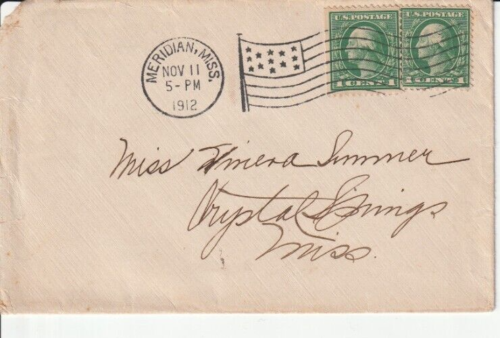 MERIDIAN, MISS.
NOV 11
5-PM
1912
U.S. POSTAGE
1 CENT 1
U.S. POSTAGE
CENT 1
Miss Elmera Summer
Crystal Springs
Miss.